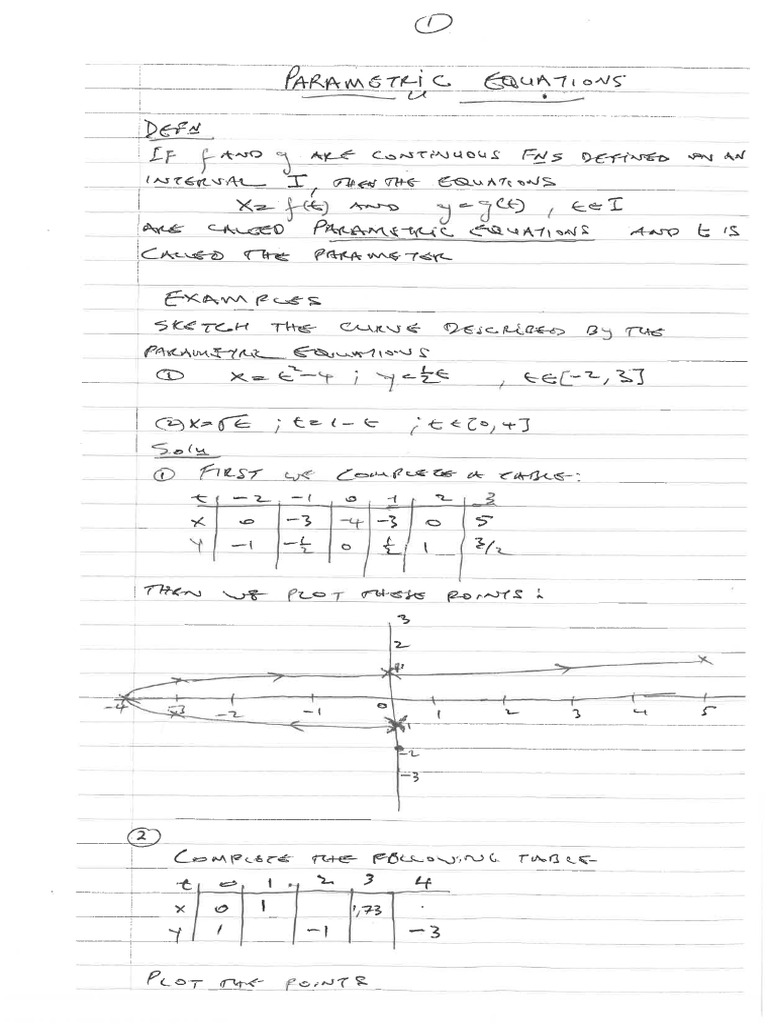 1
PARAMETRIC EQUATIONS
DEFN
IF f AND g ARE CONTINUOUS FNS DEFINED ON AN
INTERVAL I, THEN THE EQUATIONS
x = f(t) AND y = g(t), t∈I
ARE CALLED PARAMETRIC EQUATIONS AND t IS
CALLED THE PARAMETER
EXAMPLES
SKETCH THE CURVE DESCRIBED BY THE
PARAMETRIC EQUATIONS
① x = t²-4 ; y = ½t , t∈[-2, 3]
(2) x = √t ; t = 1 - t ; t ∈ [0, 4]
Soln
① FIRST WE COMPLETE A TABLE:
t -2 -1 0 1 2 3
x 0 -3 -4 -3 0 5
y -1 -½ 0 ½ 1 3/2
THEN WE PLOT THESE POINTS:
3
2
1
-4 -3 -2 -1 0 1 2 3 4 5
-1
-2
-3
②
COMPLETE THE FOLLOWING TABLE
t 0 1 2 3 4
x 0 1 1,73
y 1 -1 -3
PLOT THE POINTS